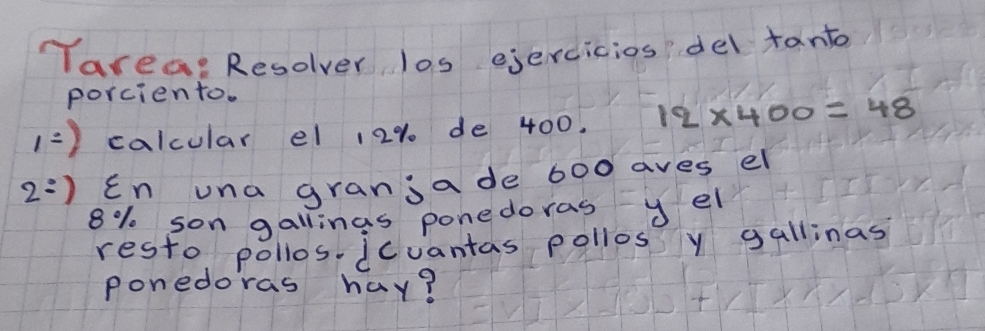 Tarea: Resolver los ejercicios del tanto
porciento.
1=) calcular el 12% de 400. 12 x 400 = 48
2=) En una granja de 600 aves el
8% son gallinas ponedoras y el
resto pollos. ¿cuantas pollos y gallinas
ponedoras hay?